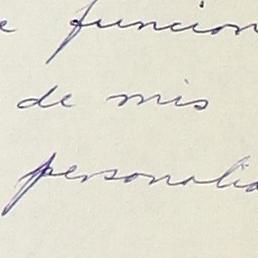 e funcion
de mis
personalid